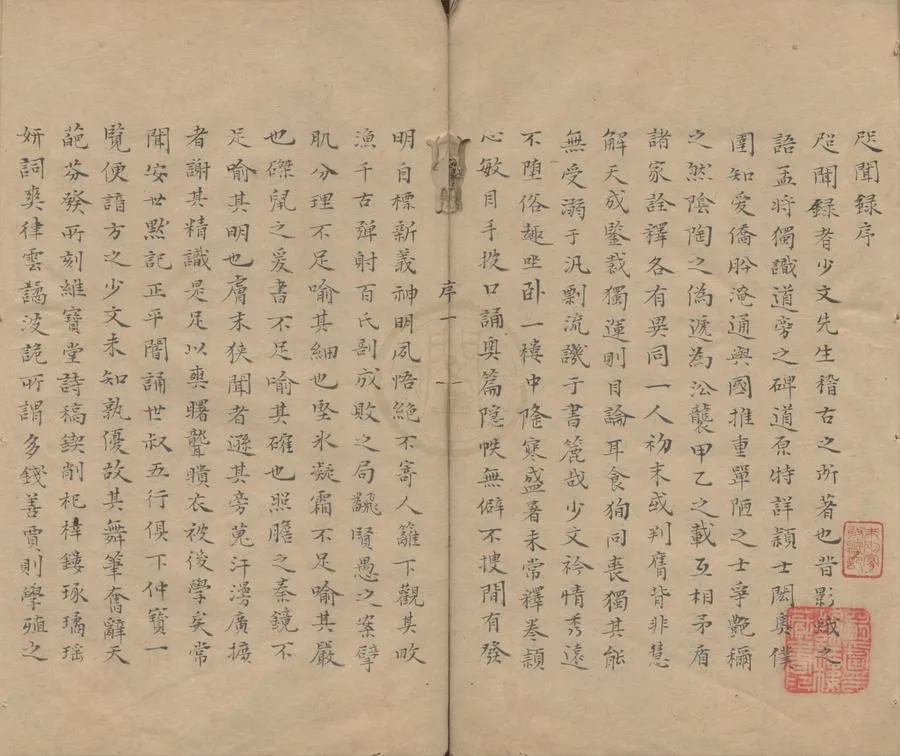 咫聞録序
咫聞録者少文先生稽古之所著也昔影娥之
語孟將獨識道旁之碑道原特詳穎士閎奧僕
圉知愛僑肸淹通與國推重單陋之士爭艷稱
之然陰陶之偽遞為沿襲甲乙之載互相矛盾
諸家詮釋各有異同一人初末或判膺背非慧
解天成鑒裁獨運則目論耳食狥同喪獨其能
無受溺于汎剽流譏于書簏哉少文衿情秀遠
不墮俗趣坐卧一樓中隆寒盛暑未常釋卷穎
心敏目手披口誦奧篇隱帙無僻不搜間有發
序一
明自標新義神明夙悟絕不寄人籬下觀其畋
漁千古殫射百氏剖成敗之局翻賢愚之案擘
肌分理不足喻其細也堅氷凝霜不足喻其嚴
也磔鼠之爰書不足喻其確也照膽之秦鏡不
足喻其明也膚末狹聞者遜其旁蒐汗漫廣擴
者謝其精識是足以奭曙聾瞶衣被後學矣常
聞安世默記正平闇誦世叔五行俱下仲寶一
覽便諳方之少文未知孰優故其舞筆奮辭天
葩芬發所刻維寶堂詩稿鍥削杞梓鏤琢璚瑶
妍詞奭律雲譎波詭所謂多錢善賈則學殖之